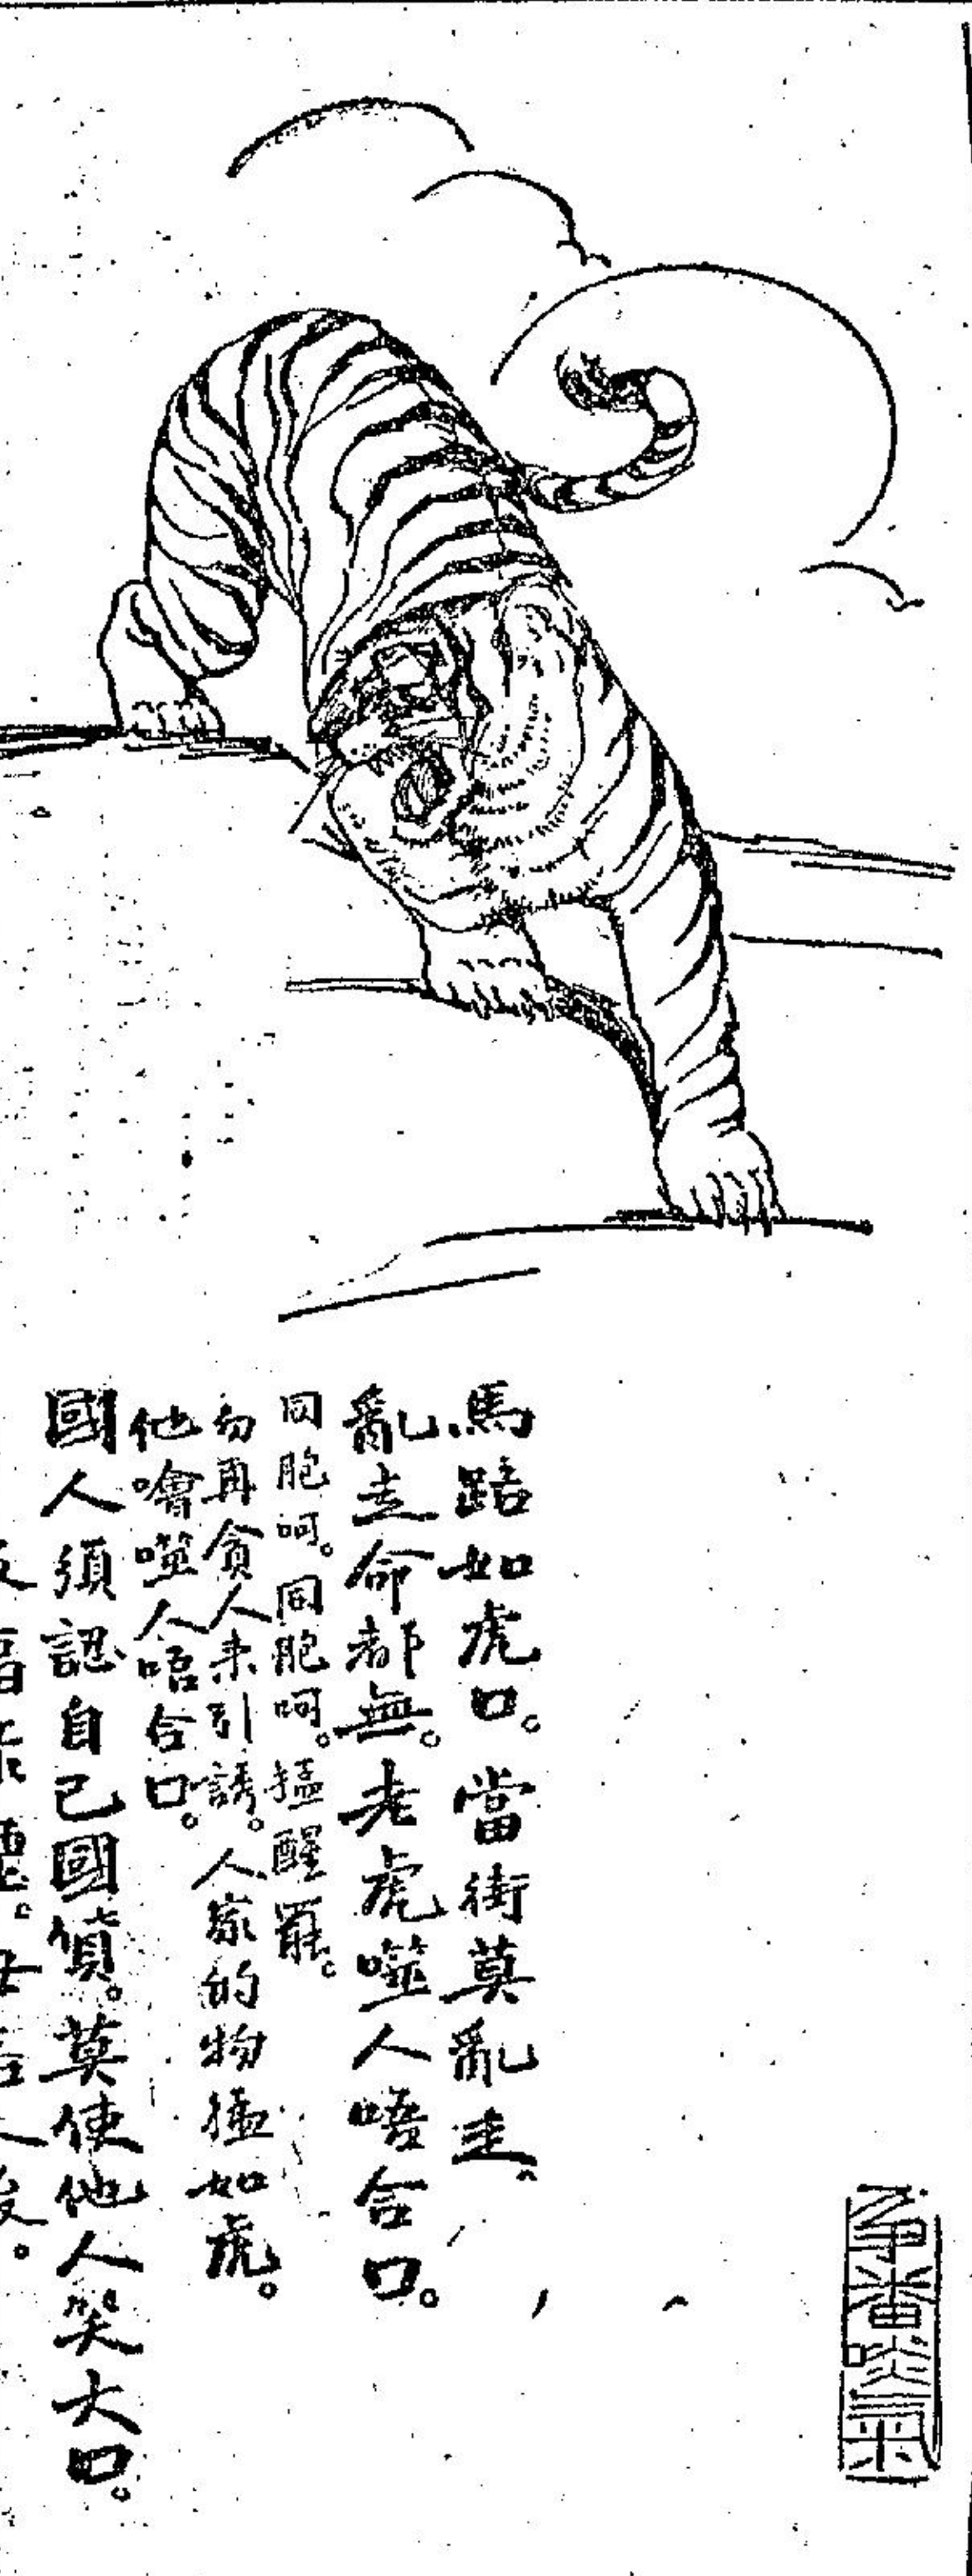 爭番啖氣
馬路如虎口。當街莫亂走。
亂走命都無。老虎噬人唔合口。
同胞呵。同胞呵。猛醒罷。
勿再貪人来引誘。人家的物猛如虎。
他噲噬人唔合口。
國人須認自己國貨。莫使他人笑大口。